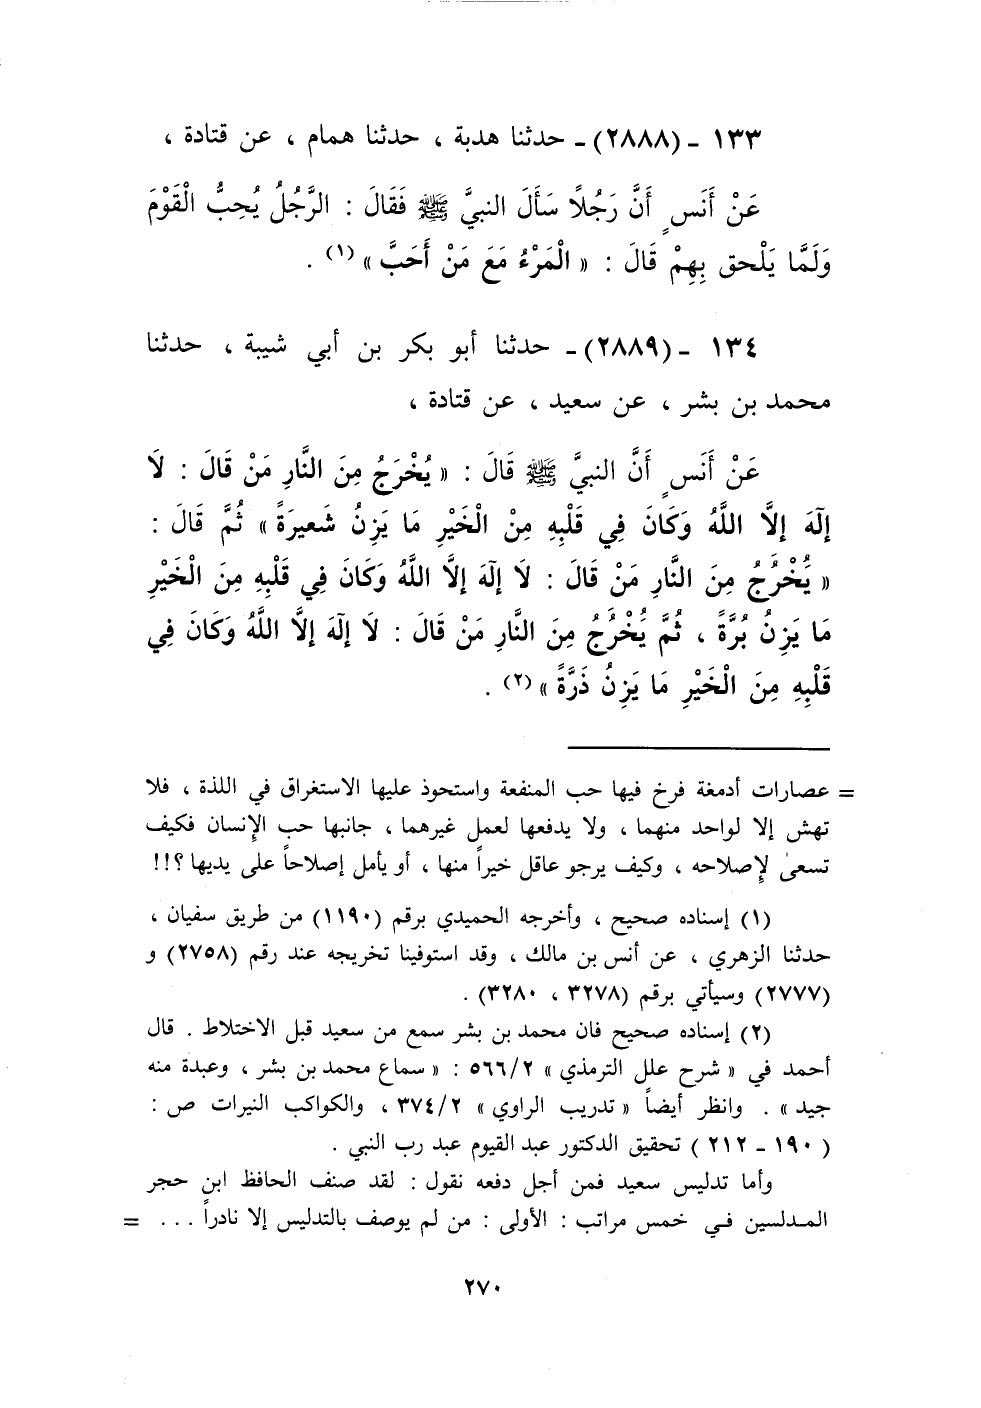 ١٣٣ - (٢٨٨٨) - حدثنا هدبة ، حدثنا همام ، عن قتادة ،
عَنْ أَنَسٍ أَنَّ رَجُلًا سَأَلَ النبيَّ ﷺ فَقَالَ : الرَّجُلُ يُحِبُّ الْقَوْمَ
وَلَمَّا يَلْحق بِهِمْ قَالَ : « الْمَرْءُ مَعَ مَنْ أَحَبَّ » (١) .
١٣٤ - (٢٨٨٩) - حدثنا أبو بكر بن أبي شيبة ، حدثنا
محمد بن بشر ، عن سعيد ، عن قتادة ،
عَنْ أَنَسٍ أَنَّ النبيَّ ﷺ قَالَ : « يُخْرَجُ مِنَ النَّارِ مَنْ قَالَ : لَا
إِلٰهَ إِلَّا اللَّهُ وَكَانَ فِي قَلْبِهِ مِنْ الْخَيْرِ مَا يَزِنُ شَعيرَةً » ثُمَّ قَالَ :
« يُخْرَجُ مِنَ النَّارِ مَنْ قَالَ : لَا إِلٰهَ إِلَّا اللَّهُ وَكَانَ فِي قَلْبِهِ مِنَ الْخَيْرِ
مَا يَزِنُ بُرَّةً ، ثُمَّ يُخْرَجُ مِنَ النَّارِ مَنْ قَالَ : لَا إِلٰهَ إِلَّا اللَّهُ وَكَانَ فِي
قَلْبِهِ مِنَ الْخَيْرِ مَا يَزِنُ ذَرَّةً » (٢) .
= عصارات أدمغة فرخ فيها حب المنفعة واستحوذ عليها الاستغراق في اللذة ، فلا
تهش إلا لواحد منهما ، ولا يدفعها لعمل غيرهما ، جانبها حب الإنسان فكيف
تسعىٰ لإصلاحه ، وكيف يرجو عاقل خيراً منها ، أو يأمل إصلاحاً على يديها ؟!!!
(١) إسناده صحيح ، وأخرجه الحميدي برقم (١١٩٠) من طريق سفيان ،
حدثنا الزهري ، عن أنس بن مالك ، وقد استوفينا تخريجه عند رقم (٢٧٥٨) و
(٢٧٧٧) وسيأتي برقم (٣٢٧٨ ، ٣٢٨٠) .
(٢) إسناده صحيح فان محمد بن بشر سمع من سعيد قبل الاختلاط . قال
أحمد في « شرح علل الترمذي » ٥٦٦/٢ : « سماع محمد بن بشر ، وعبدة منه
جيد » . وانظر أيضاً « تدريب الراوي » ٣٧٤/٢ ، والكواكب النيرات ص :
( ١٩٠ - ٢١٢ ) تحقيق الدكتور عبد القيوم عبد رب النبي .
وأما تدليس سعيد فمن أجل دفعه نقول : لقد صنف الحافظ ابن حجر
المدلسين في خمس مراتب : الأولى : من لم يوصف بالتدليس إلا نادراً ... =
٢٧٠